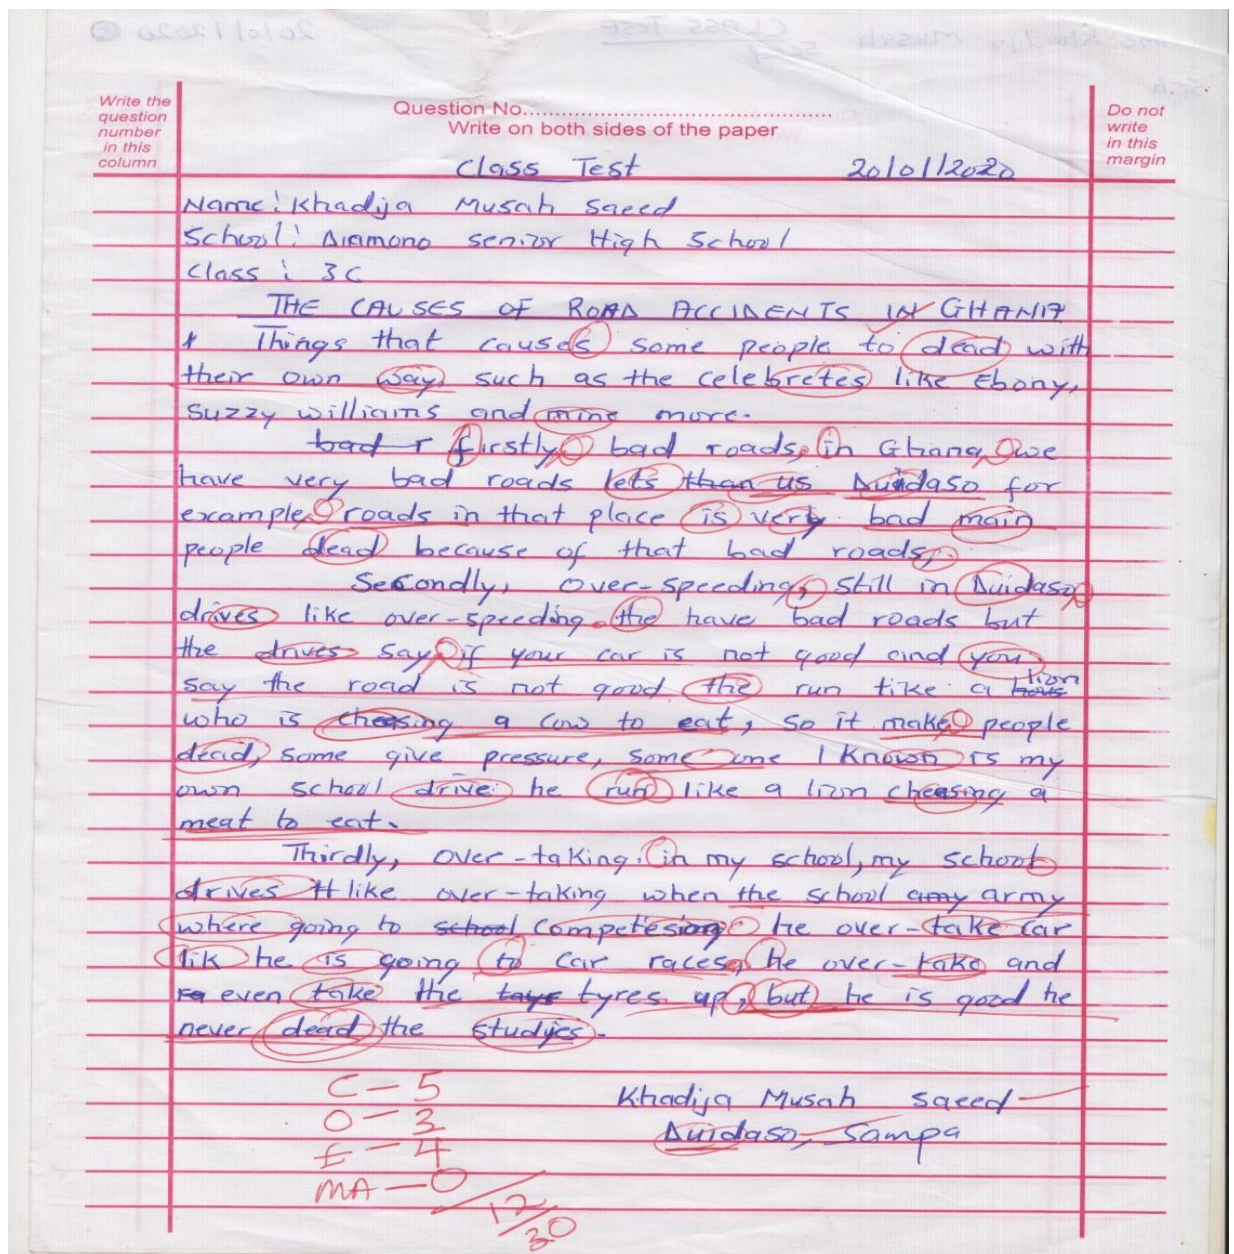 Write the question number in this column
Question No.
Write on both sides of the paper
Do not write in this margin
Class Test 20/01/2020
Name: Khadija Musah Saeed
School: Diamono Senior High School
Class: 3C
THE CAUSES OF ROAD ACCIDENTS IN GHANA
Things that causes some people to dead with
their own way, such as the celebretes like Ebony,
Suzzy williams and mine more.
bad r firstly, bad roads, in Ghana, we
have very bad roads lets than us Duidaso for
example, roads in that place is very bad main
people dead because of that bad roads,.
Secondly, Over-speeding, still in Duidaso,
drives like over-speeding. the have bad roads but
the drives say, if your car is not good and you
say the road is not good the run like a lion
who is cheesing a cow to eat, so it make people
dead, some give pressure, some one I known is my
own school drive he run like a lion cheesing a
meat to eat.
Thirdly, over-taking. in my school, my school
drives like over-taking when the school amy army
where going to school he over-take car
lik he is going to car races, he over-take and
even take the tyres up, but he is good he
never dead the studyes.
C - 5
O - 3
E - 4
MA - 0
12/30
Khadija Musah Saeed
Duidaso, Sampa